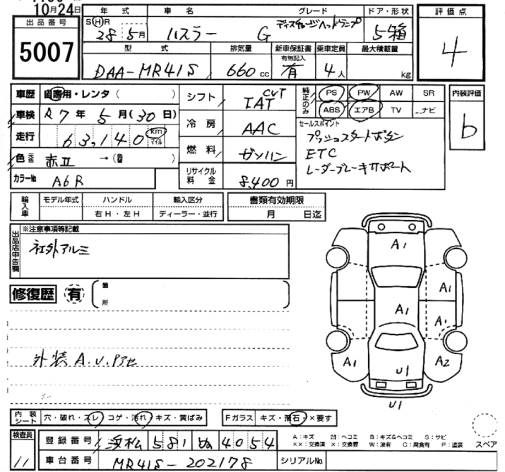 10月24日
出品番号
5007
年式 グレード ドア・形状
SH R 28年5月 ハスラー G ディスチャージヘッドランプ 5箱
型式 排気量 新車保証書 乗車定員 最大積載量
有無記入
DAA-MR41S 660cc 有 4人 kg
評価点
4
車歴 自家用・レンタ( )
車検 R7年5月(30日)
走行 63,140 km マイル
色 赤II →( )
カラーNo A6R
シフト CVT IAT
冷房 AAC
燃料 ガソリン
リサイクル料金 8,400円
純正のみ PS PW AW SR
ABS エアB TV ナビ
セールスポイント
プッシュスタートボタン
ETC
レーダーブレーキサポート
内装評価
b
輸入車 モデル年式 ハンドル 輸入区分
年 右H・左H ディーラー・並行
書類有効期限
月 日迄
出品店申告欄
※注意事項等記載
社外アルミ
修復歴 有 箇所
外装A.U.Pアセ
A1
A1
A1
A1
A1
A2
U1
U1
内装シート 穴・破れ・スレ コゲ・汚れ キズ・黄ばみ
Fガラス キズ・飛石・×要す
検査員 11
登録番号 浜松 581 ぬ 4054
車台番号 MR41S-202178
シリアルNo
A:キズ M:ヘコミ B:キズ&ヘコミ S:サビ
XX:交換済 X:要交換 W:波有 C:腐食有 P:塗装
スペア